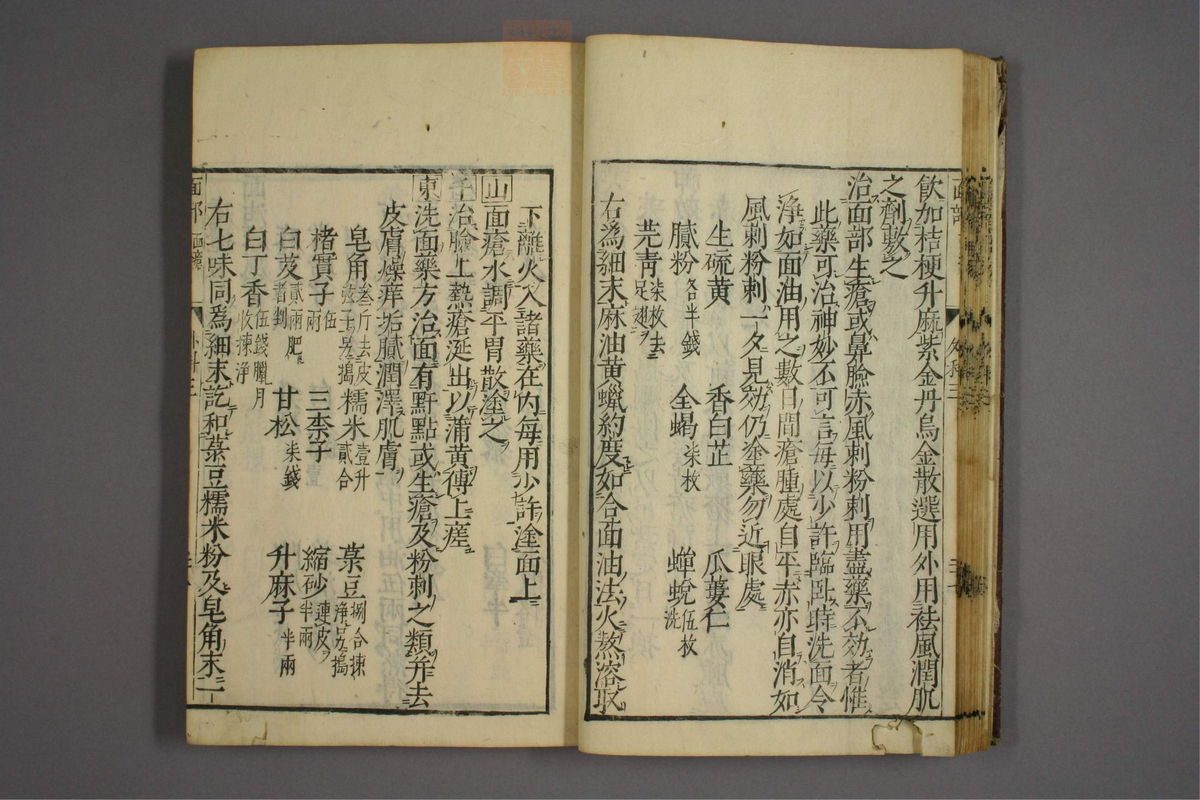 飲如桔梗升麻紫金丹烏金散選用外用祛風潤肌
之劑敷之
治面部生瘡或鼻臉赤風刺粉刺用盡藥不効者惟
此藥可治神妙不可言每以少許臨臥時洗面令
淨如面油用之數日間瘡腫處自平赤亦自消如
風刺粉刺一夕見効仍塗藥勿近眼處
生硫黃 香白芷 瓜蔞仁
膩粉各半錢 全蝎柒枚 蟬蛻伍枚洗
芫青柒枚去足翅
右為細末麻油黃蠟約度如合面油法火熬溶取
下離火入諸藥在內每用少許塗面上
山面瘡水調平胃散塗之
治臉上熱瘡涎出以蒲黃傅上瘥
東洗面藥方治面有䵟點或生瘡及粉刺之類并去
皮膚燥痒垢膩潤澤肌膚
皂角叁斤去皮弦子另搗 糯米壹升貳合 菉豆捌合揀淨另搗
楮實子伍兩 三柰子 縮砂連皮半兩
白芨貳兩肥者剉 甘松柒錢 升麻子半兩
白丁香伍錢臘月收揀淨
右七味同為細末訖和菉豆糯米粉及皂角末一
面部